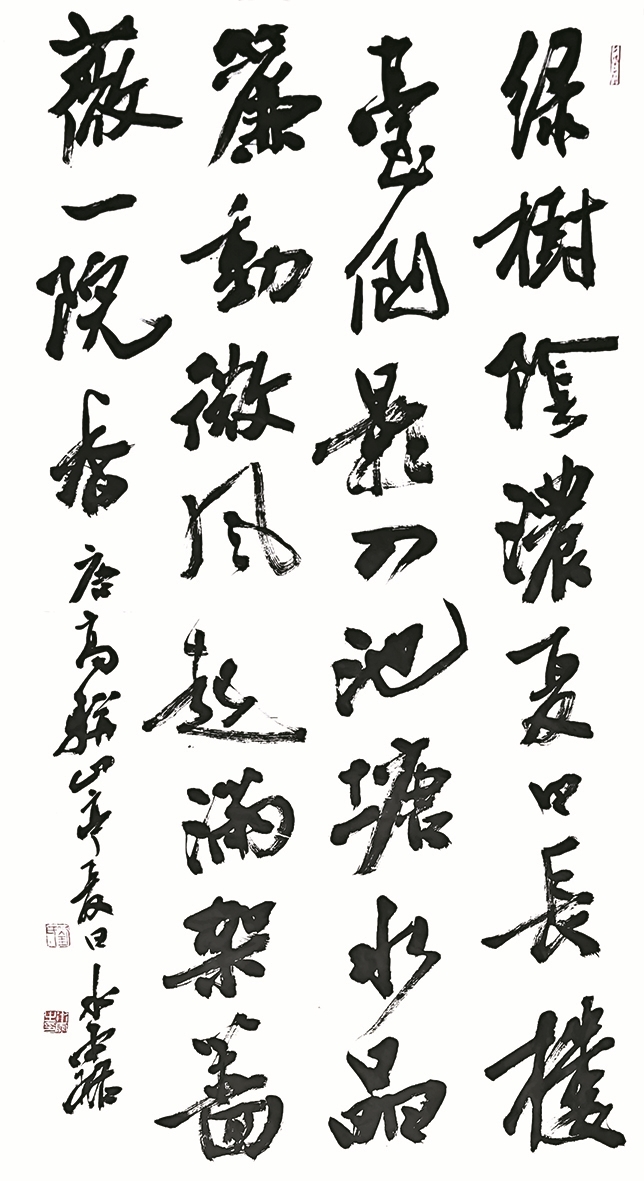 绿樹陰濃夏日長樓
臺倒影入池塘水晶
簾動微風起滿架薔
薇一院香
唐高駢山亭夏日 水